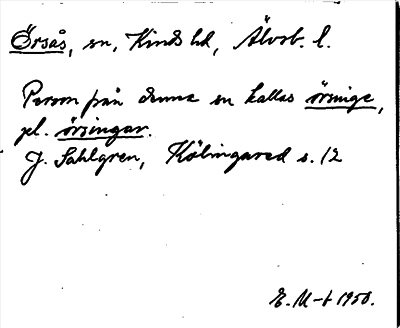 Örsås, sn, Kinds hd, Älvsb. l.
Person från denna sn kallas örsinge,
pl. örsingar.
J. Sahlgren, Kölingared s. 12
E. M-t 1950.